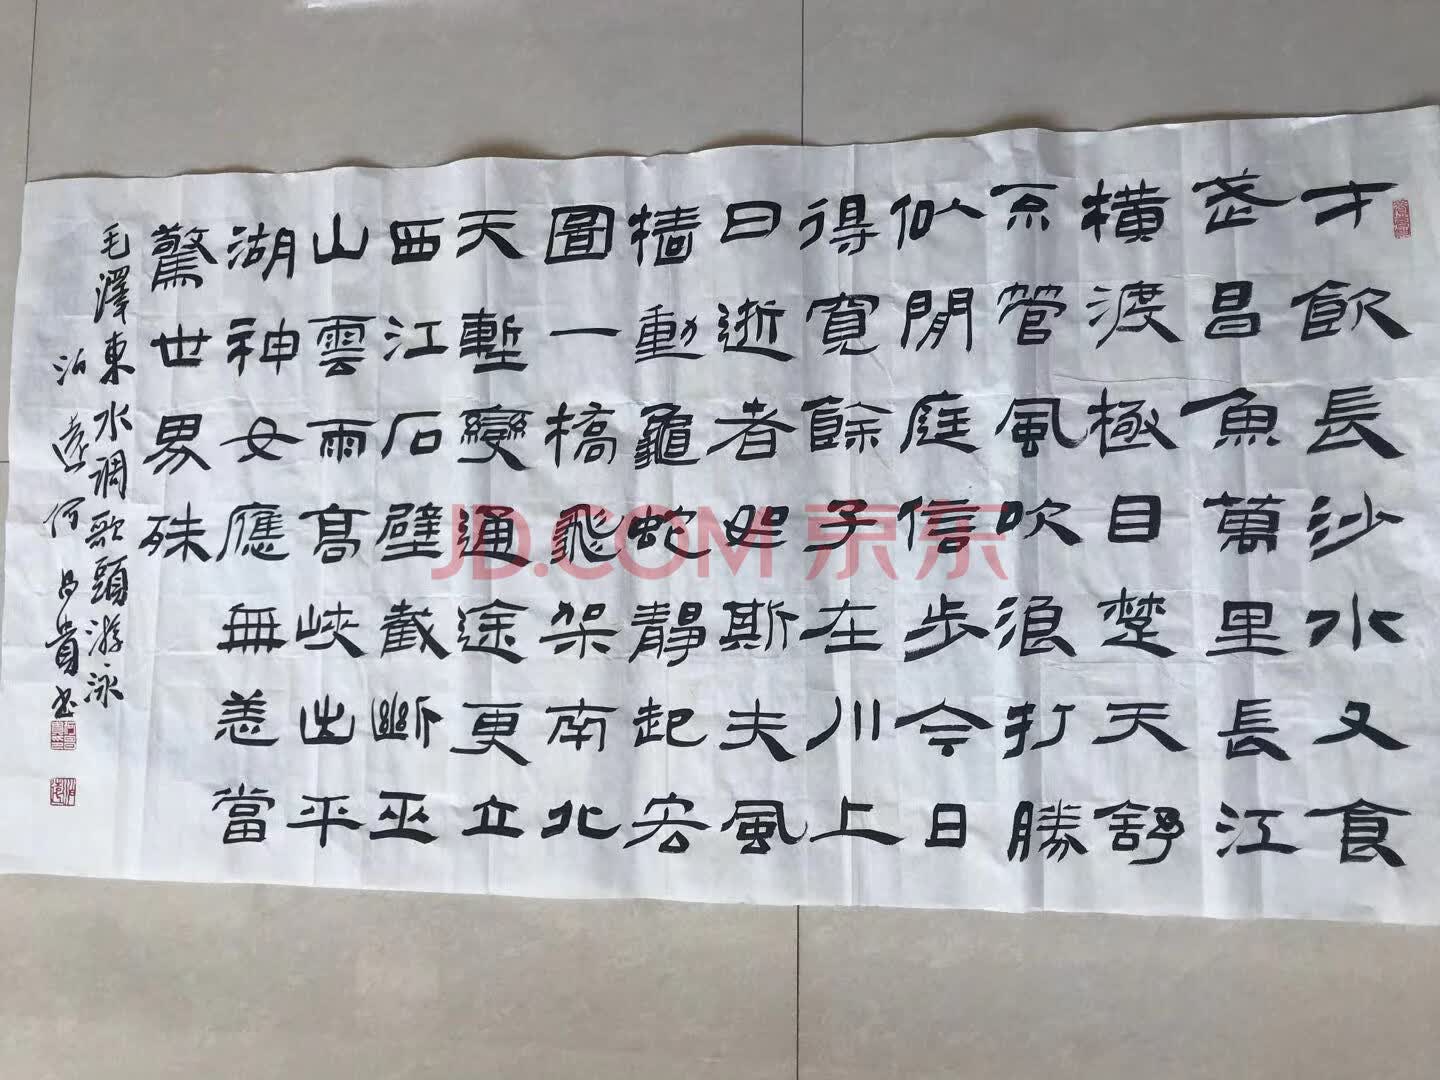 才飲長沙水又食
武昌魚萬里長江
橫渡極目楚天舒
不管風吹浪打勝
似閒庭信步今日
得寬餘子在川上
曰逝者如斯夫風
檣動龜蛇靜起宏
圖一橋飛架南北
天塹變通途更立
西江石壁截斷巫
山雲雨高峽出平
湖神女應無恙當
驚世界殊
毛澤東水调歌頭游泳
泊遠何昌貴书
JD.COM 京东